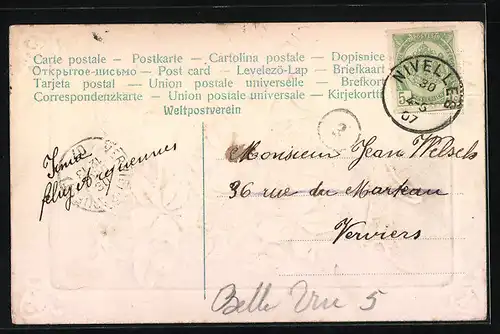 Carte postale – Postkarte – Cartolina postale – Dopisnice
Открытое-письмо – Post card – Levelező-Lap – Briefkaart
Tarjeta postal – Union postale universelle – Brefkort
Correspondenzkarte – Union postale universale – Kirjekortti
Weltpostverein
5
NIVELLES
07
3
Monsieur Jean
36 rue du
Verviers
Belle Vue 5